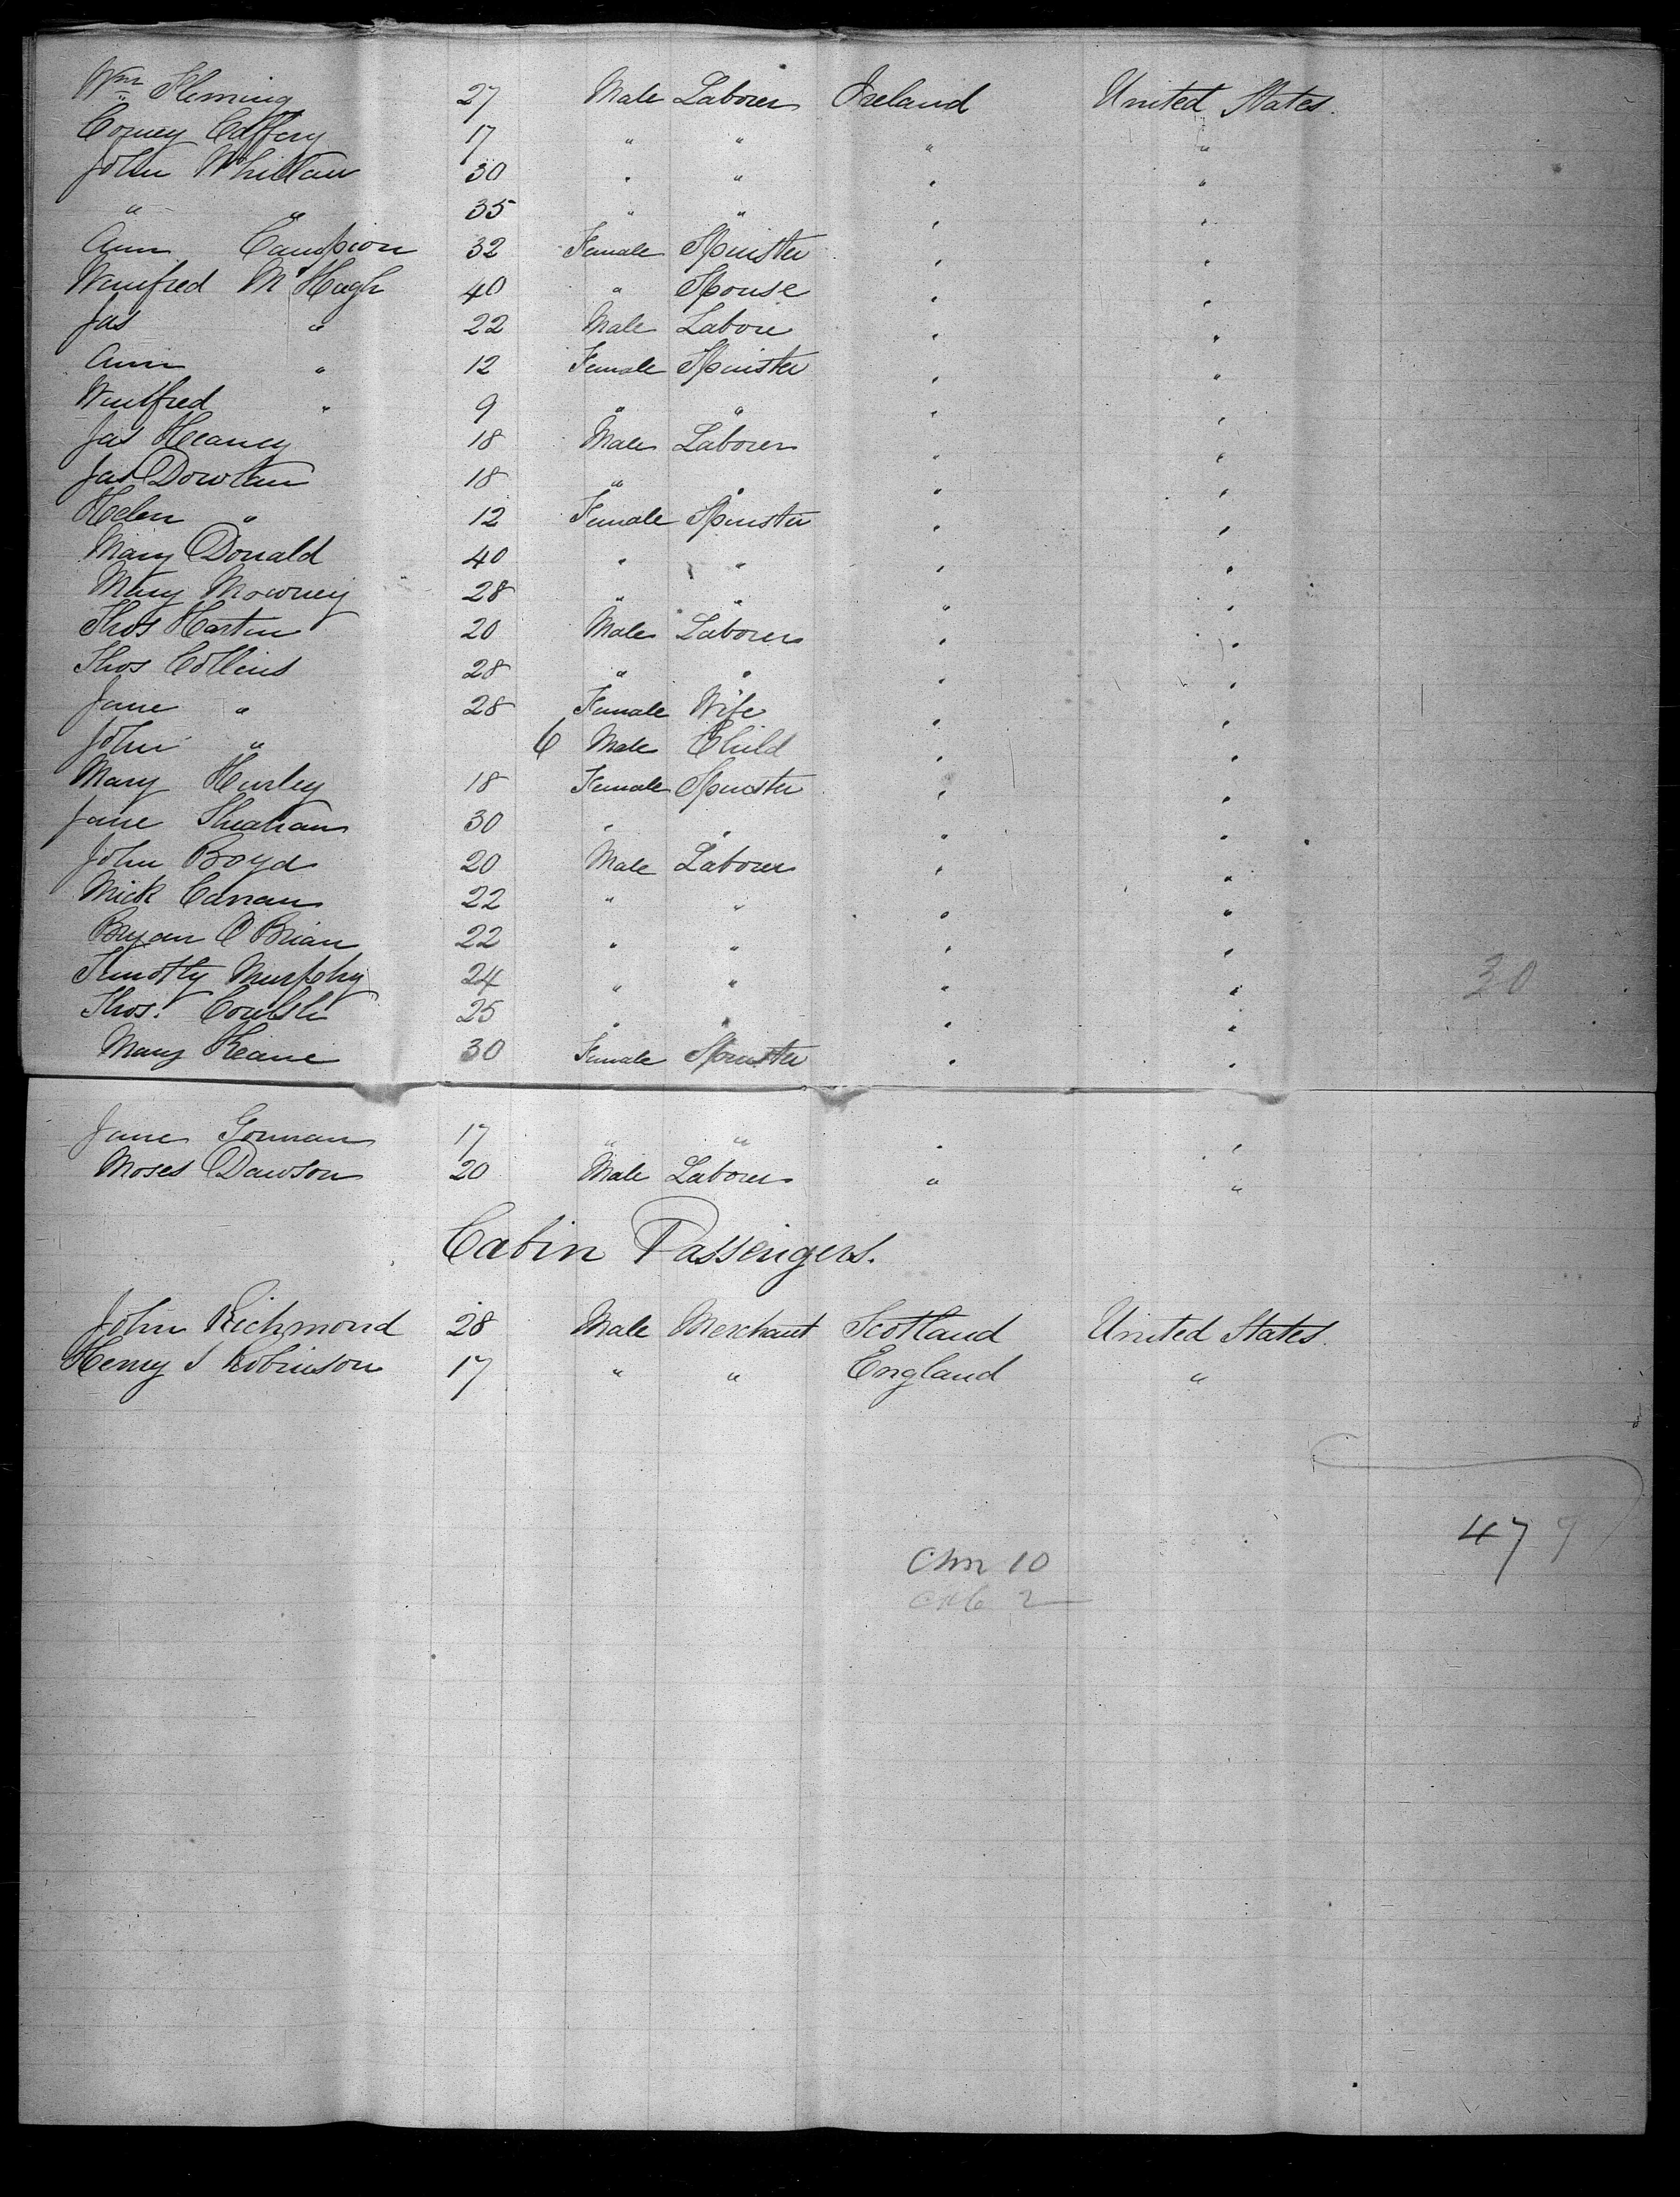 Wm Fleming 27 Male Laborer Ireland United States.
Corney Caffery 17 " " " "
John Whittan 30 " " " "
" " 35 " " " "
Ann Campion 32 Female Spinster " "
Winifred McHugh 40 " Spouse " "
Jas " 22 Male Labore " "
Ann " 12 Female Spinster " "
Winifred " 9 " " " "
Jas Heaney 18 Male Laborer " "
Jas Dowlan 18 " " " "
Helen " 12 Female Spinster " "
Mary Donald 40 " " " "
Mary 28 " " " "
Thos 20 Male Laborer " "
Thos Collins 28 " " " "
Jane " 28 Female Wife " "
John " 6 Male Child " "
Mary Hurley 18 Female Spinster " "
Jane Sheahan 30 " " " "
John Boyd 20 Male Laborer " "
Mick Canan 22 " " " "
Bryan O Brian 22 " " " "
Timothy Murphy 24 " " " " 30
Thos. 25 " " " "
Mary Keane 30 Female Spinster " "
Jane Gorman 17 " " " "
Moses Dawson 20 Male Laborer " "
Cabin Passengers.
John Richmond 28 Male Merchant Scotland United States.
Henry S Robinson 17 " " England "
47
Chn 10